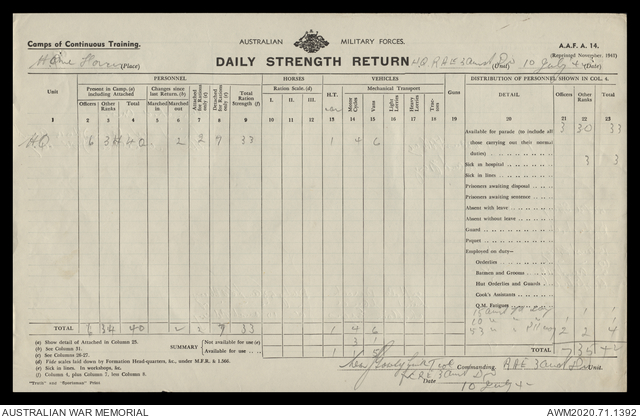 AUSTRALIAN MILITARY FORCES.
Camps of Continuous Training.
A.A.F. A. 14.
(Reprinted November, 1941)
DAILY STRENGTH RETURN
(Place)
H.Q. RAE 3 Aust Div (Unit) 10 July 4 (Date)
PERSONNEL
HORSES
VEHICLES
DISTRIBUTION OF PERSONNEL SHOWN IN COL. 4.
Unit
Present in Camp. (a) including Attached
Changes since last Return. (b)
Attached for Rations only (c)
Detached for Rations only (c)
Total Ration Strength (f)
Ration Scale. (d)
H.T.
Mechanical Transport
Guns
DETAIL
Officers
Other Ranks
Total
Officers
Other Ranks
Total
Marched in
Marched out
I.
II.
III.
Motor Cycles
Vans
Light Lorries
Heavy Lorries
Tractors
1 2 3 4 5 6 7 8 9 10 11 12 13 14 15 16 17 18 19 20 21 22 23
H.Q. 6 34 40 2 2 9 33 1 4 6
Available for parade (to include all those carrying out their normal duties) 3 30 33
Sick in hospital 3 3
Sick in lines
Prisoners awaiting disposal
Prisoners awaiting sentence
Absent with leave
Absent without leave
Guard
Piquet
Employed on duty—
Orderlies
Batmen and Grooms
Hut Orderlies and Guards
Cook's Assistants
Q.M. Fatigues
TOTAL 6 34 40 2 2 9 33 1 4 6
2 2 4
SUMMARY
Not available for use (e) 3 1
Available for use 1 1 5
TOTAL 7 35 42
(a) Show detail of Attached in Column 25.
(b) See Column 31.
(c) See Columns 26-27.
(d) Vide scales laid down by Formation Head-quarters, &c., under M.F.B. & I.566.
(e) Sick in lines. In workshops, &c.
(f) Column 4, plus Column 7, less Column 8.
"Truth" and "Sportsman" Print
Commanding RAE 3 Aust Div Unit.
RAE 3 Aust Div
Date 10 July 4
AUSTRALIAN WAR MEMORIAL
AWM2020.71.1392